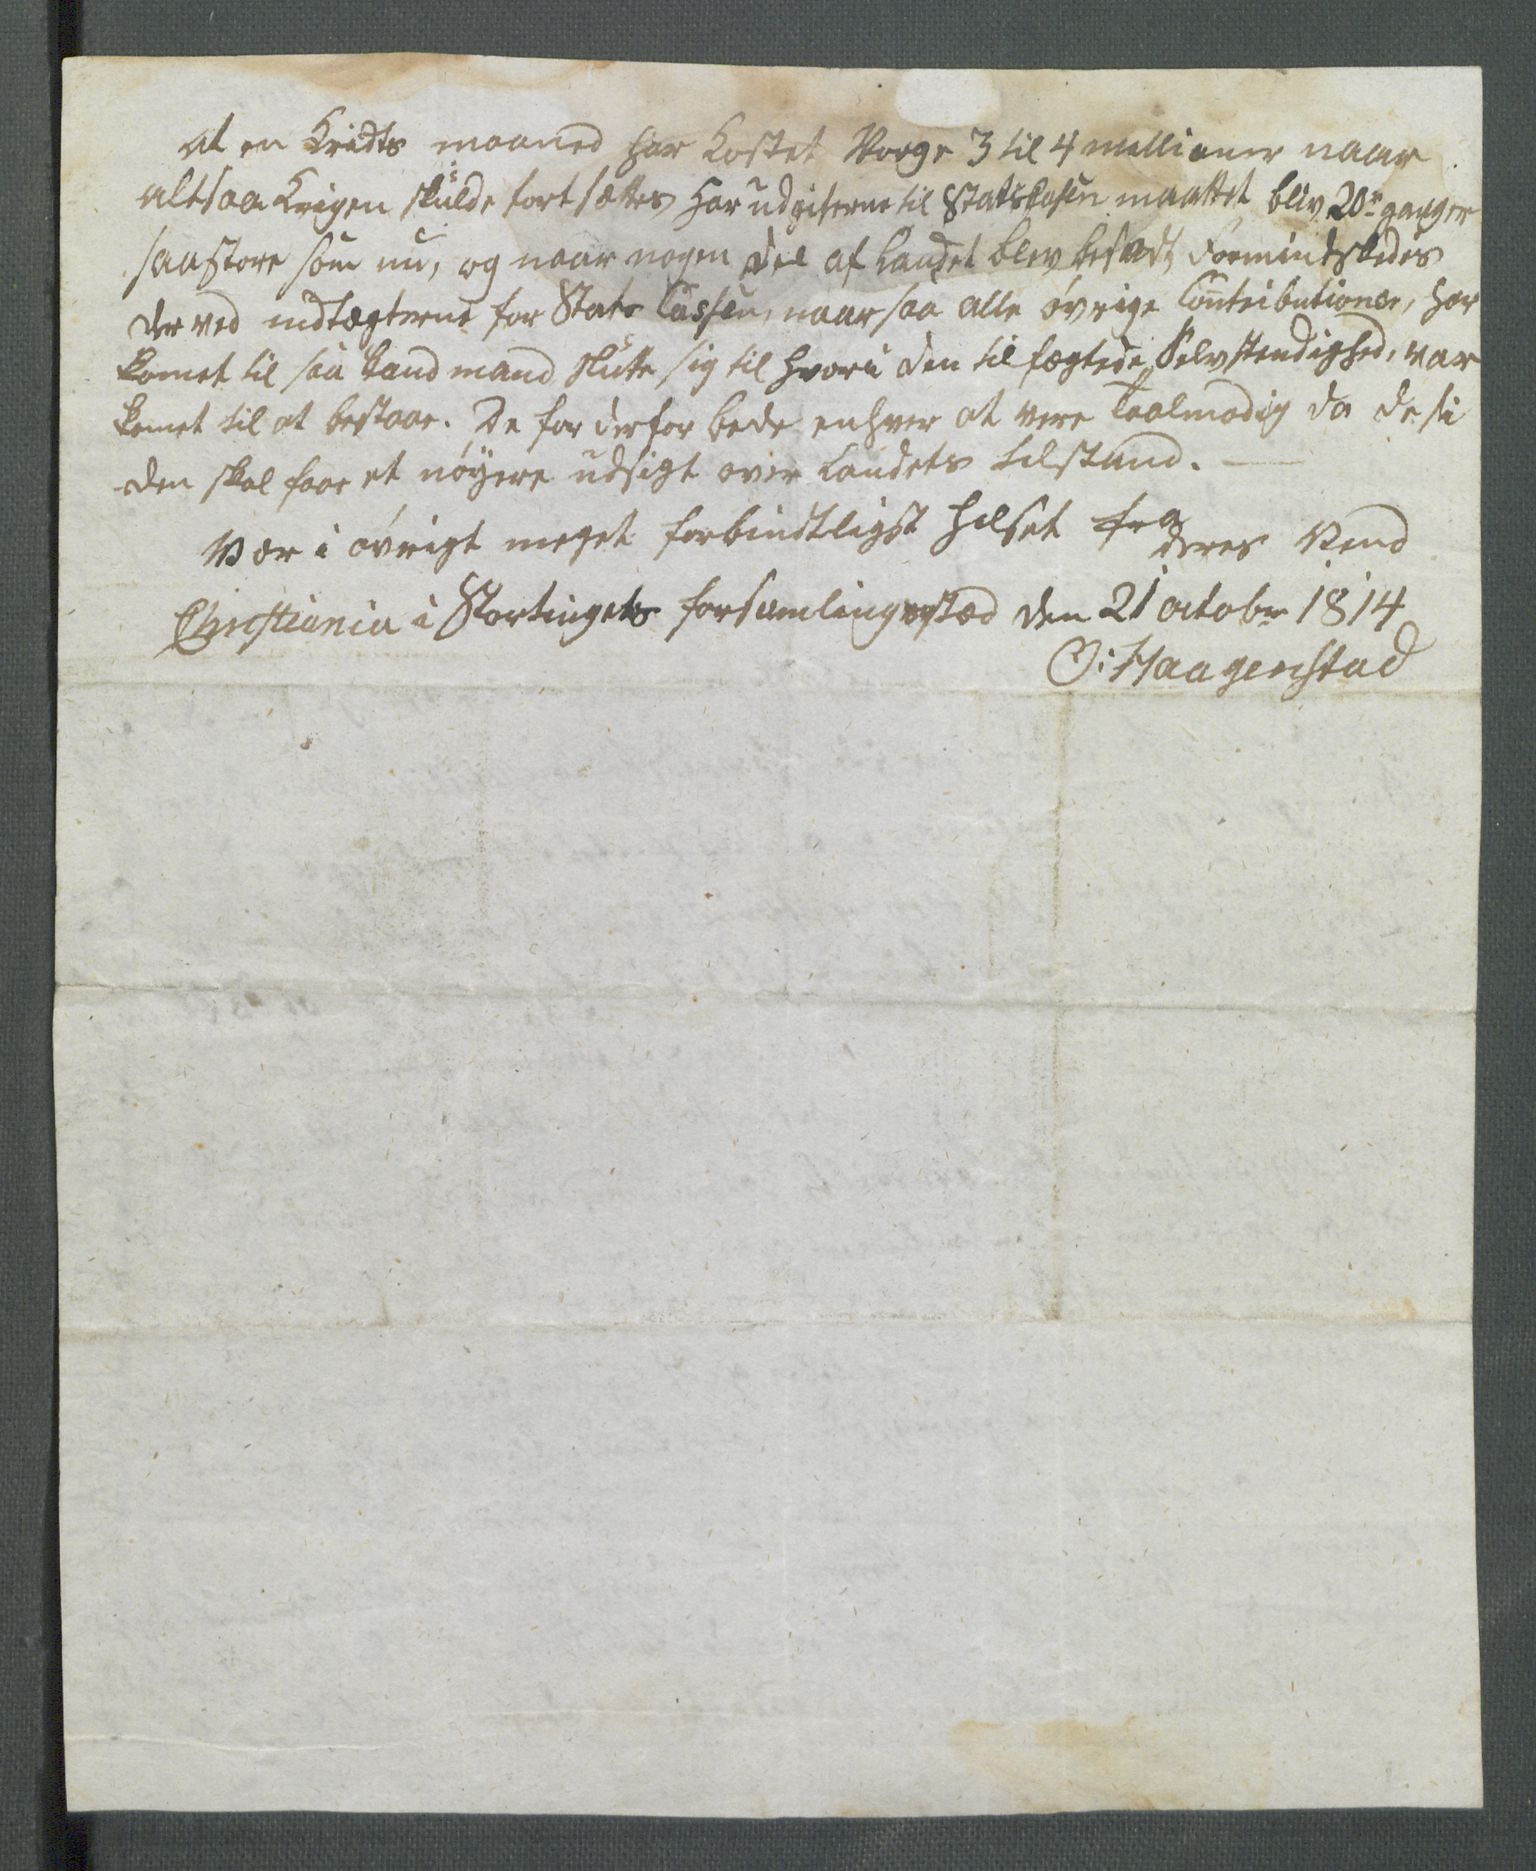 at en Kridts maaned har kostet Norge 3 til 4 mellioner naar
altsaa Krigen skulde fortsættes har udgifterne til Statskasen maattet bliv 20de ganger
saa store som nu, og naar nogen del af Landet blev besadt, Formindskedes
der ved indtægterne for Stats Cassen, naar saa alle øvrige Contributioner, har
komet til saa kand mand slutte sig til hvori den til fægtede Selvstendighed, var
komet til at bestaae. De for derfor bede enhver at vere Taalmodig da de si
den skal faae et nøyere udsigt over Landets tilstand. —
Vær i øvrigt meget forbindtligst hilset fra
deres Vend
Christiania i Stortingets forsamlingsstæd den 21 octobr 1814
O: Haagenstad